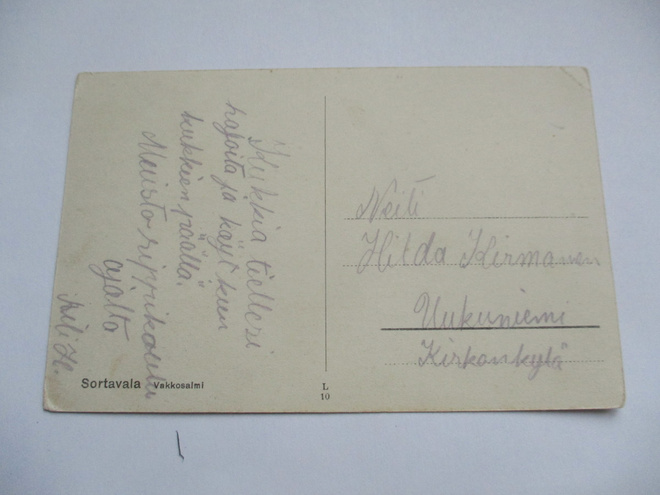 Kukkia tiellesi
hajoita ja käy kuin
kukkien päällä.
Muisto rippikoulu
ajalta
H.
Neiti
Hilda Kirmanen
Uukuniemi
Kirkonkylä
Sortavala Vakkosalmi
L
10